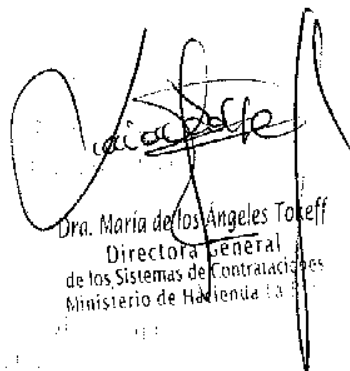 Dra. María de los Ángeles Tokeff
Directora General
de los Sistemas de Contrataciones
Ministerio de Hacienda La